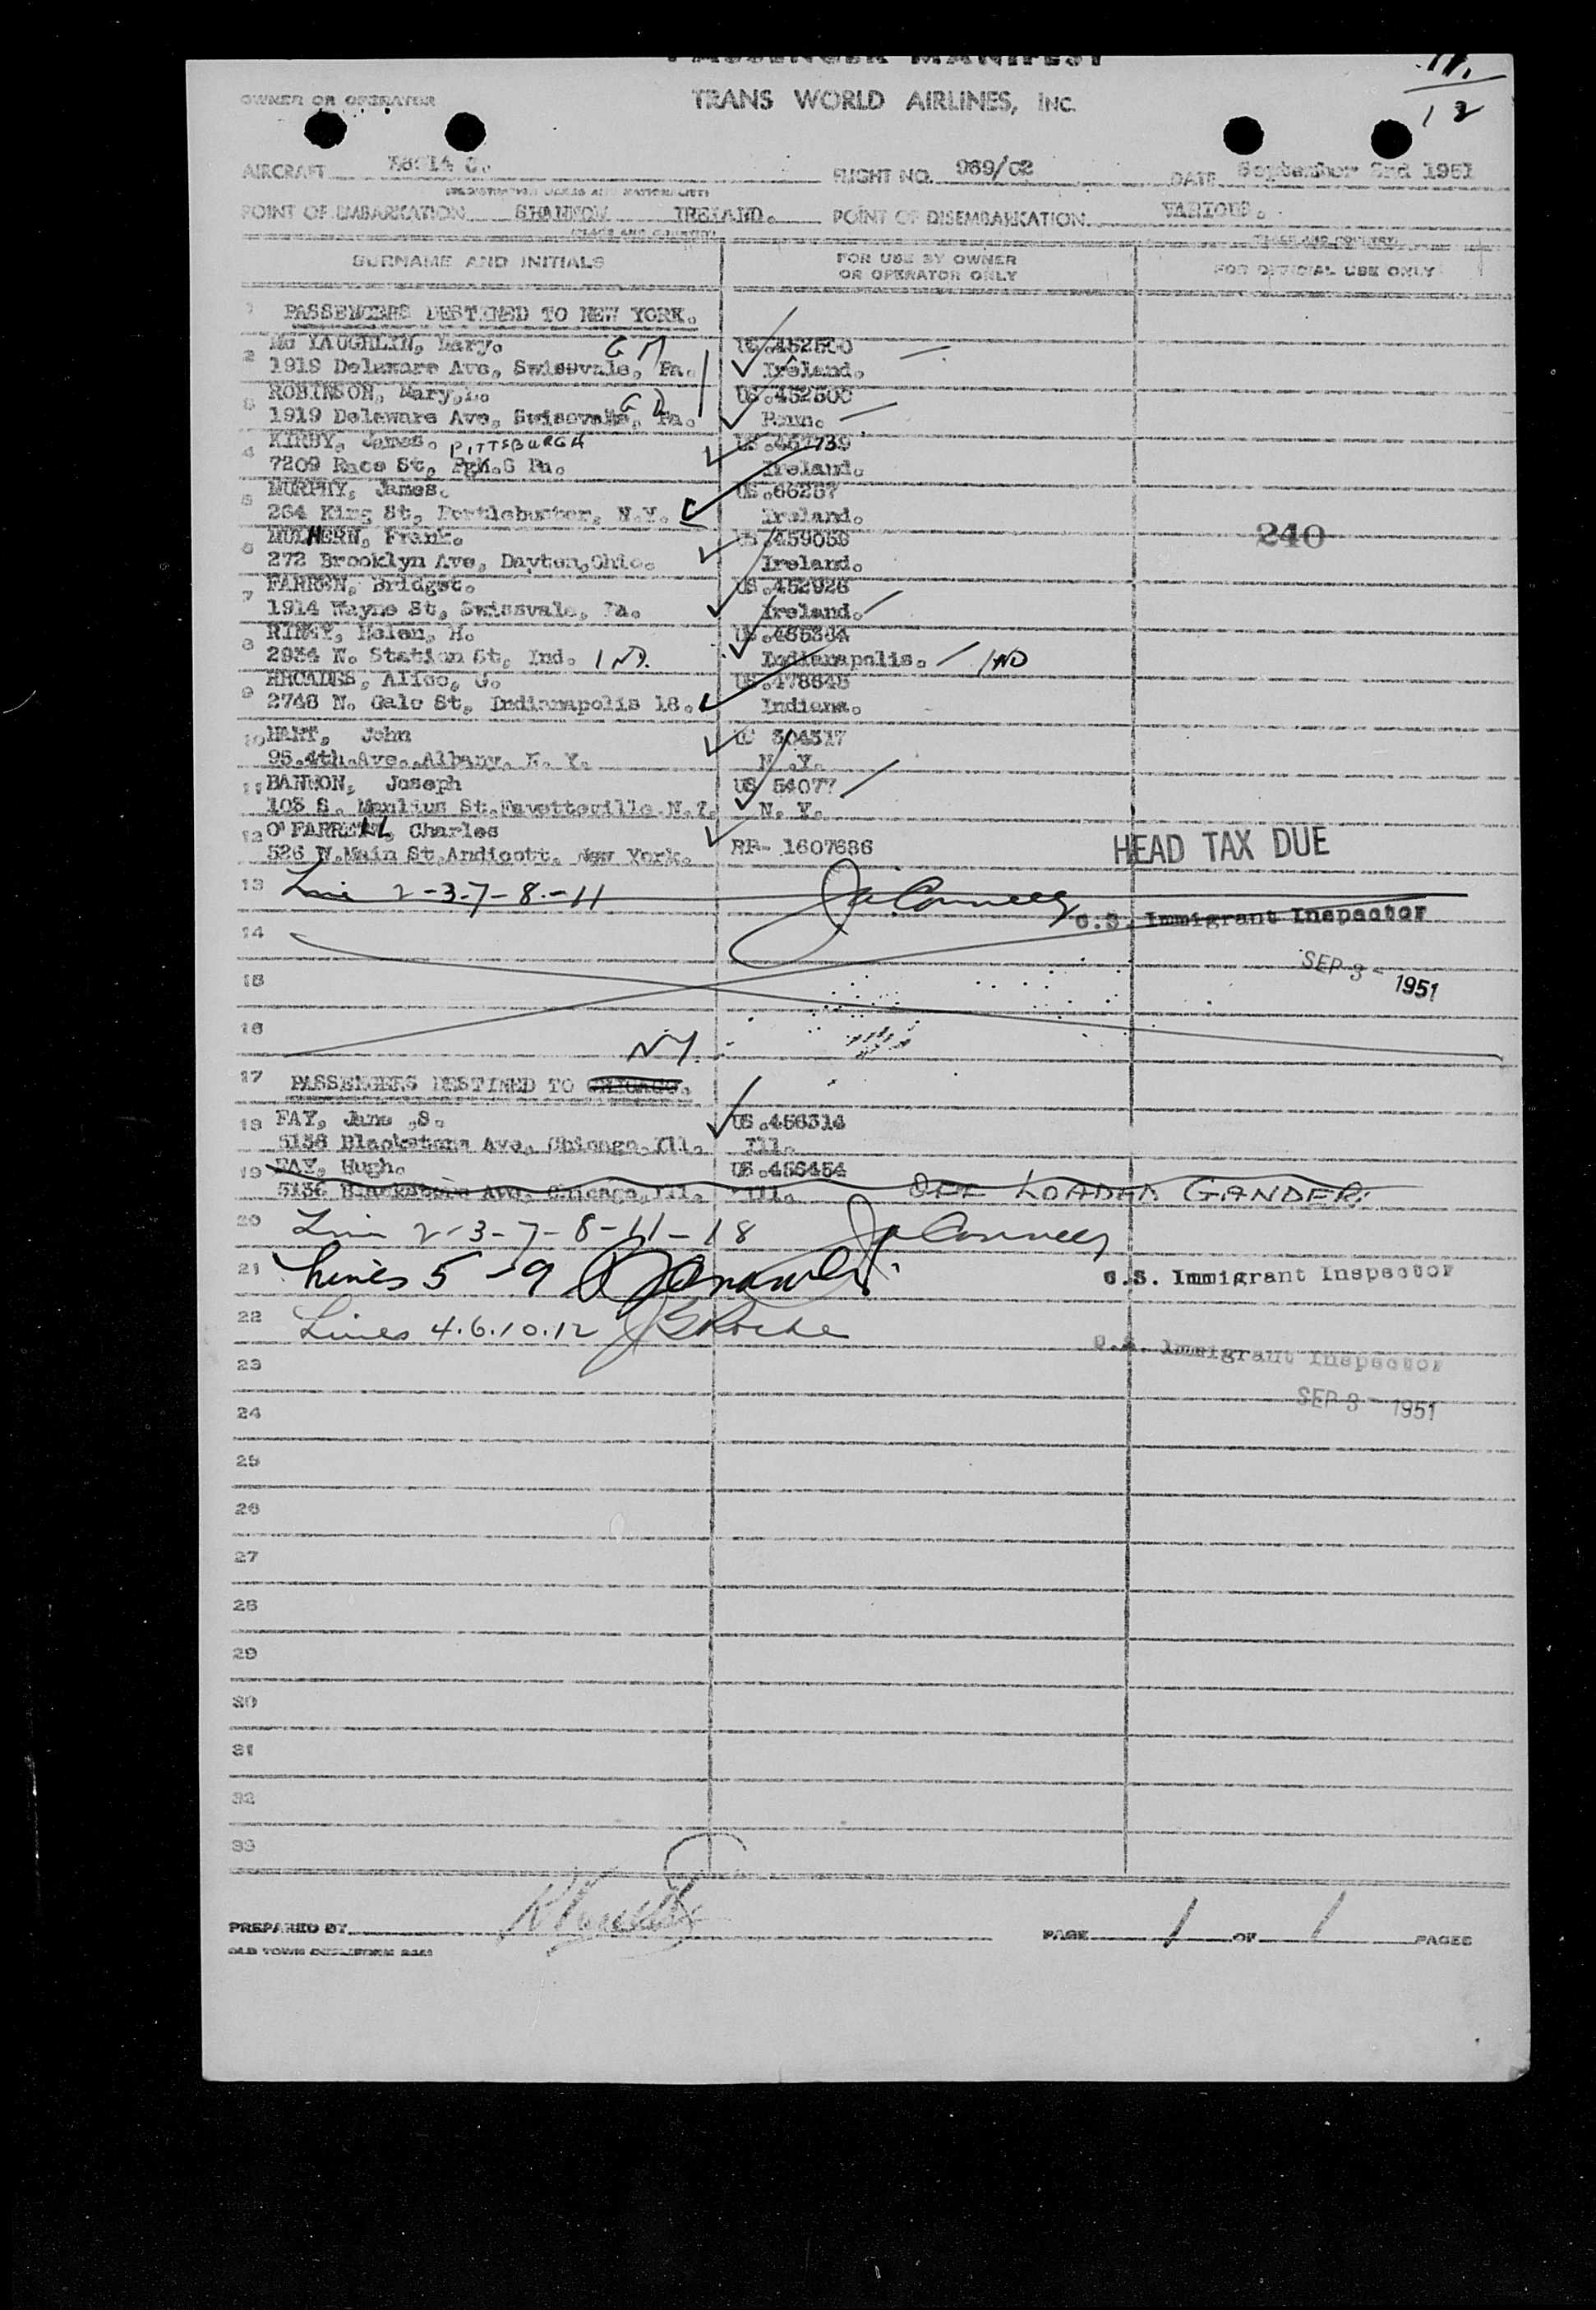 PASSENGER MANIFEST
12
OWNER OR OPERATOR
TRANS WORLD AIRLINES, INC.
AIRCRAFT FLIGHT NO. 969/02 DATE September 2nd 1951
(REGISTRATION MARKS AND NATIONALITY)
POINT OF EMBARKATION SHANNON IRELAND. POINT OF DISEMBARKATION VARIOUS.
(PLACE AND COUNTRY) (PLACE AND COUNTRY)
SURNAME AND INITIALS FOR USE BY OWNER OR OPERATOR ONLY FOR OFFICIAL USE ONLY
1 PASSENGERS DESTINED TO NEW YORK.
2 Mc LAUGHLIN, Mary. US.452500
1919 Delaware Ave, Swissvale, Pa. Ireland.
3 ROBINSON, Mary,L. US.452500
1919 Delaware Ave, Swissvale, Pa. Penn.
4 KIRBY, James. PITTSBURGH US.467739
7209 Race St, Pgh.8 Pa. Ireland.
5 MURPHY, James. US.66267
264 King St, N.Y. Ireland.
6 MULHERN, Frank. US.459056
272 Brooklyn Ave, Dayton,Ohio. Ireland.
7 FARREN, Bridget. US.452926
1914 Wayne St, Swissvale, Pa. Ireland.
8 Helen, H. US.465364
2934 N. Station St, Ind. IND. Indianapolis. IND
9 RHOADES, Alice, G. US.478645
2746 N. Gale St, Indianapolis 18. Indiana.
10 HART, John US 304317
95.4th.Ave.,Albany. N. Y. N. Y.
11 BANNON, Joseph US 54077
103 S. Manlius St.Fayetteville.N.Y. N. Y.
12 O'FARRELL, Charles RR- 1607686
526 N.Main St.Andicott. New York.
240
HEAD TAX DUE
13 Line 2-3-7-8-11 U.S. Immigrant Inspector
14
SEP 3 - 1951
15
16
N.Y.
17 PASSENGERS DESTINED TO CHICAGO.
18 FAY, Jane ,S. US.456314
5136 Blackstone Ave, Chicago,Ill. Ill.
19 FAY, Hugh. US.456454
5136 Blackstone Ave, Chicago,Ill. Ill. OFF LOADED GANDER.
20 Line 2-3-7-8-11-18
21 Lines 5-9 U.S. Immigrant Inspector
22 Lines 4.6.10.12
U.S. Immigrant Inspector
23
SEP 3 - 1951
24
25
26
27
28
29
30
31
32
33
PREPARED BY PAGE 1 OF 1 PAGES
OLD TOWN